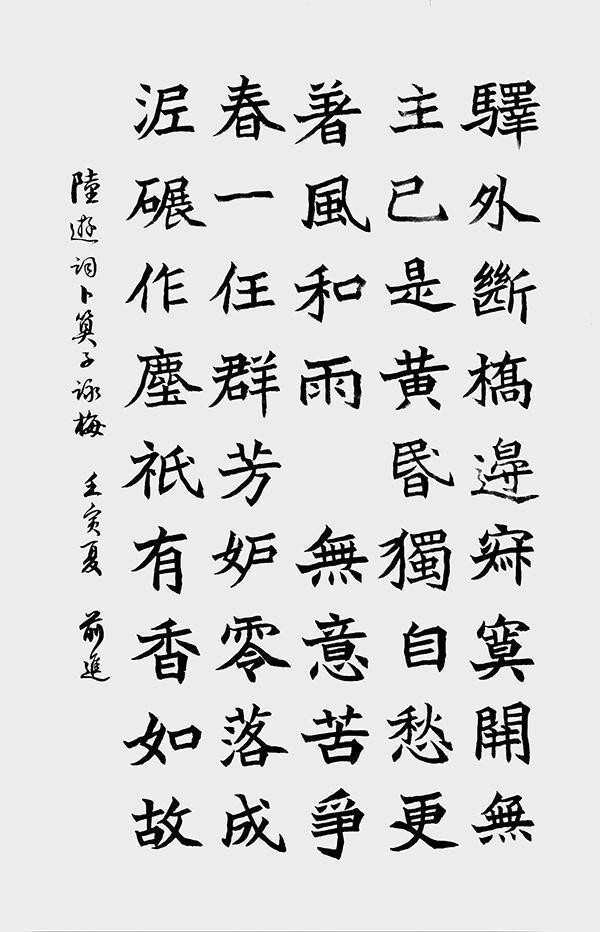 驛外斷橋邊寂寞開無
主已是黃昏獨自愁更
著風和雨 無意苦爭
春一任群芳妒零落成
泥碾作塵祇有香如故
陸遊詞卜算子詠梅 壬寅夏 前進